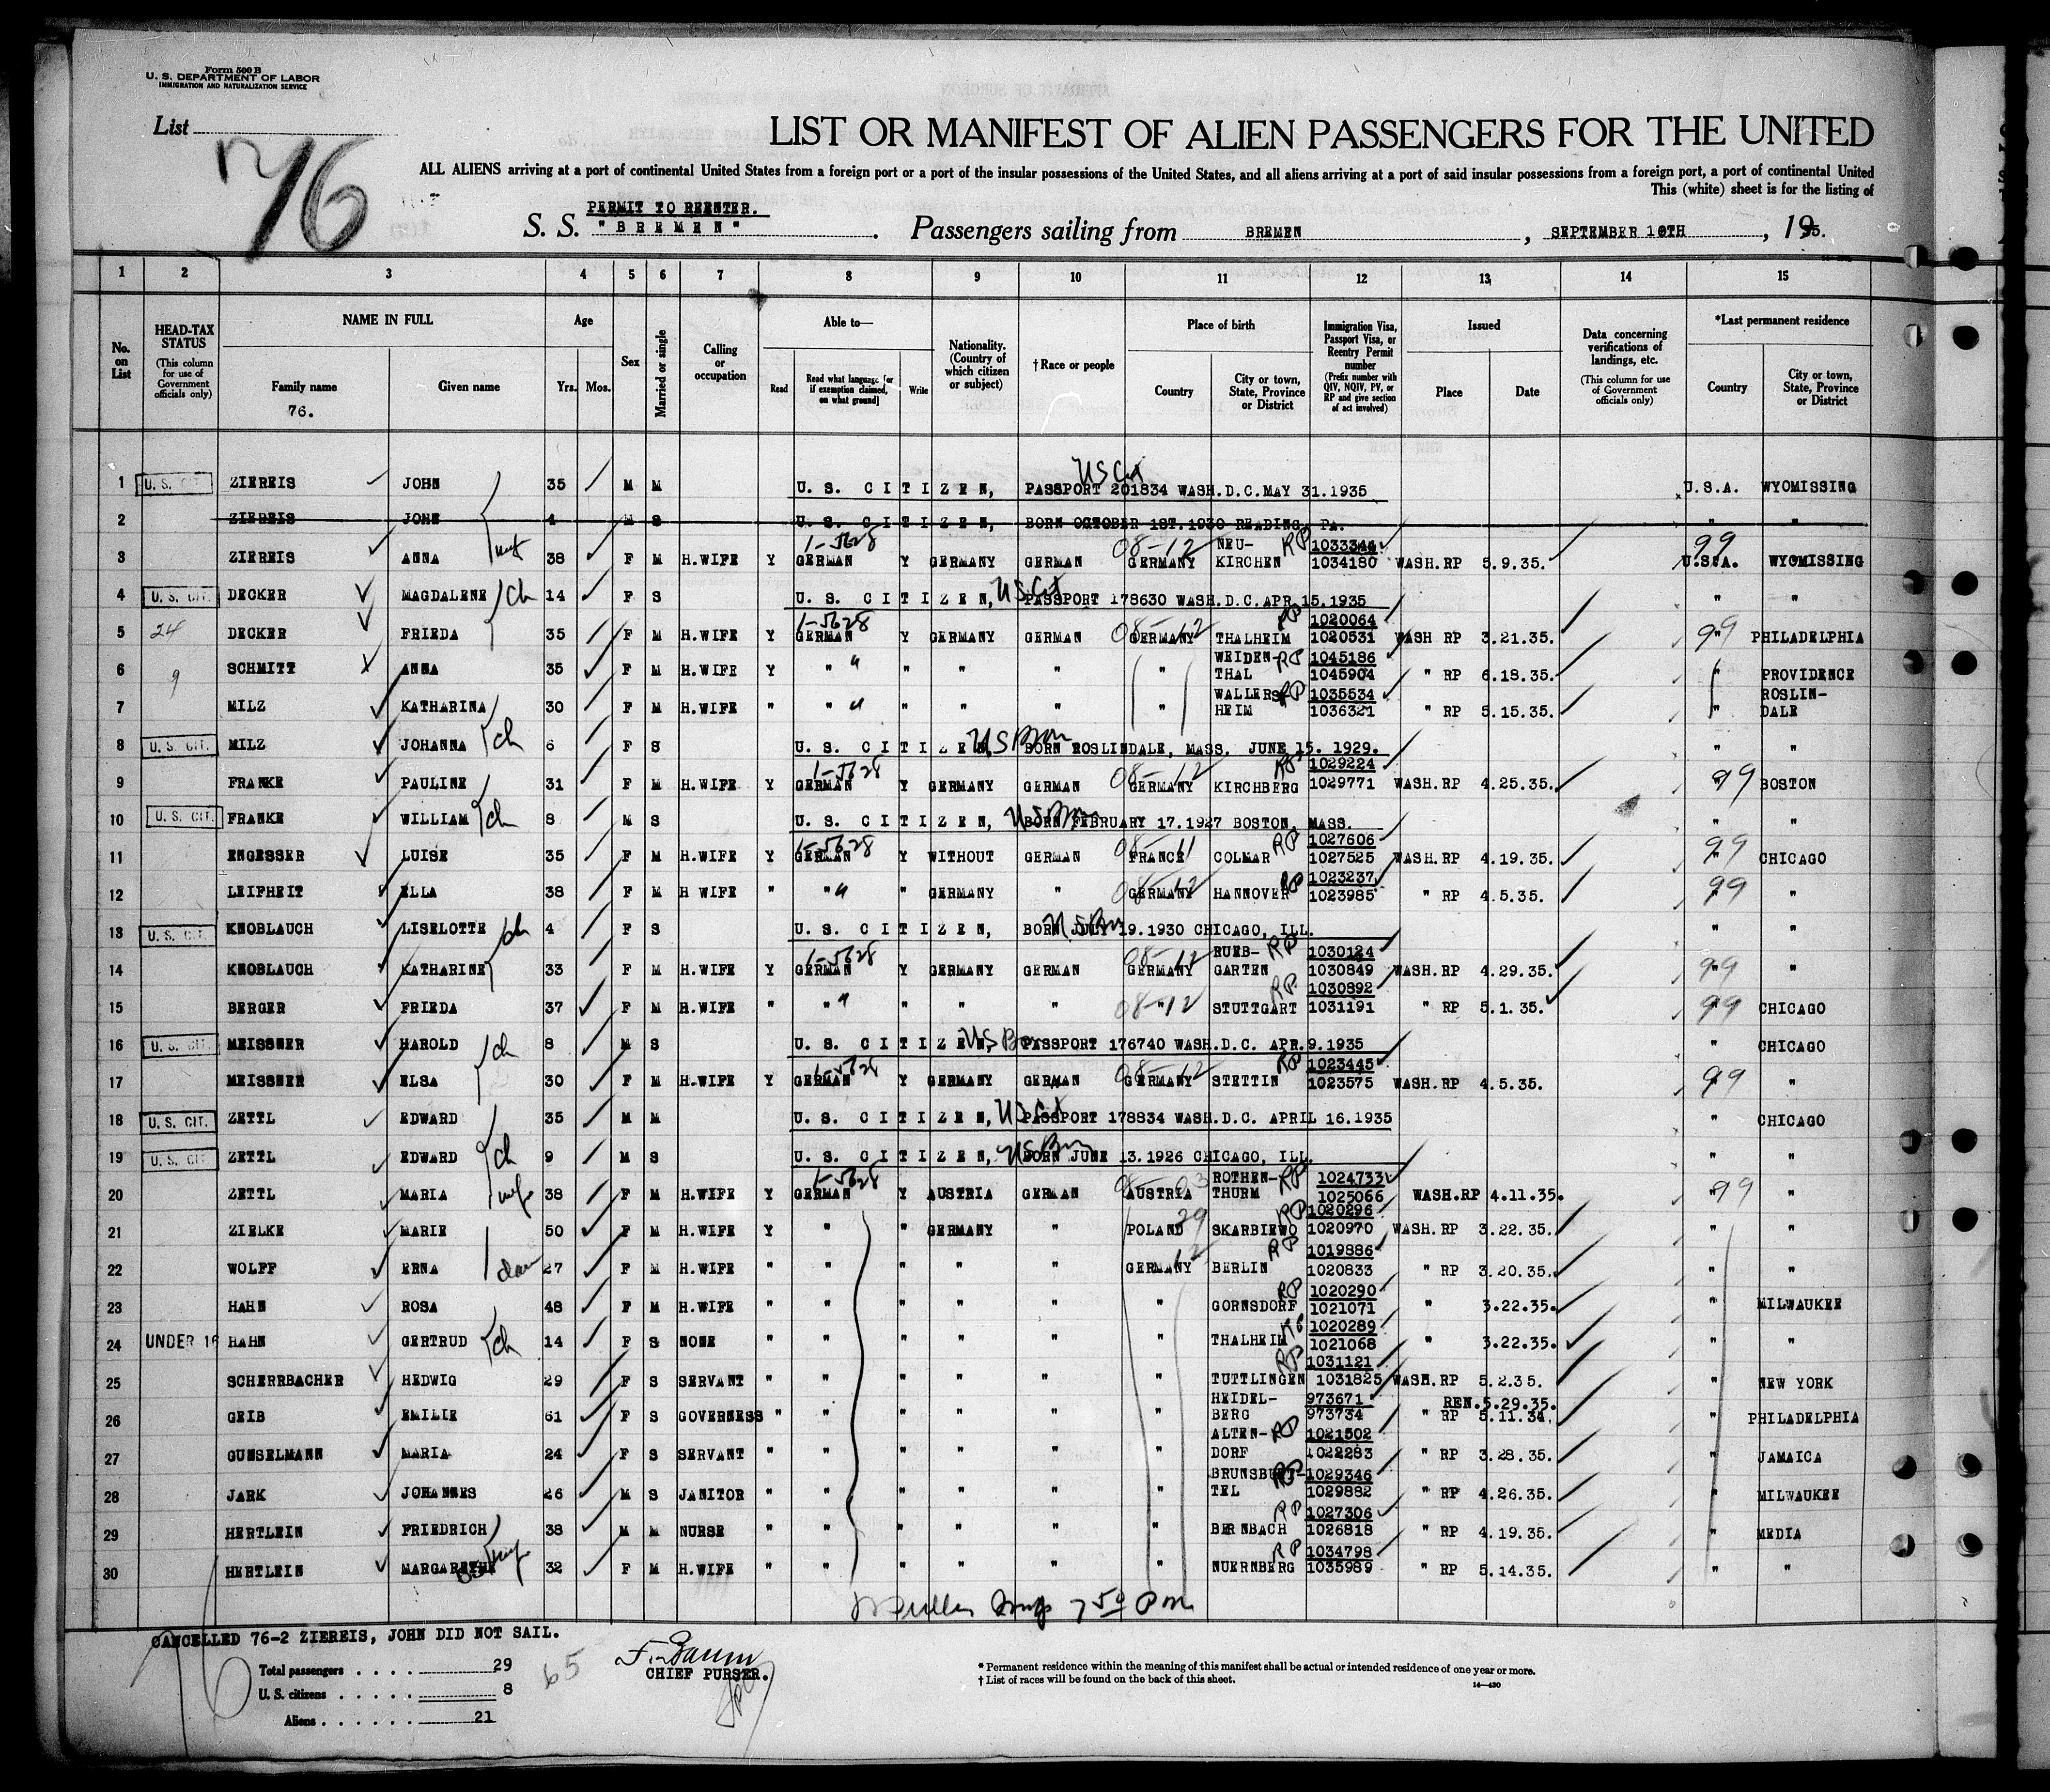 Form 500 B
U. S. DEPARTMENT OF LABOR
IMMIGRATION AND NATURALIZATION SERVICE
List
76
LIST OR MANIFEST OF ALIEN PASSENGERS FOR THE UNITED
ALL ALIENS arriving at a port of continental United States from a foreign port or a port of the insular possessions of the United States, and all aliens arriving at a port of said insular possessions from a foreign port, a port of continental United
This (white) sheet is for the listing of
PERMIT TO REENTER.
S. S. "BREMEN". Passengers sailing from BREMEN, SEPTEMBER 10TH, 1935.
1 2 3 4 5 6 7 8 9 10 11 12 13 14 15
No. on List
HEAD-TAX STATUS (This column for use of Government officials only)
NAME IN FULL Family name Given name
76.
Age Yrs. Mos.
Sex
Married or single
Calling or occupation
Able to— Read Read what language [or if exemption claimed, on what ground] Write
Nationality. (Country of which citizen or subject)
†Race or people
Place of birth Country City or town, State, Province or District
Immigration Visa, Passport Visa, or Reentry Permit number (Prefix number with QIV, NQIV, PV, or RP and give section of act involved)
Issued Place Date
Data concerning verifications of landings, etc. (This column for use of Government officials only)
*Last permanent residence Country City or town, State, Province or District
1 U. S. CIT. ZIEREIS JOHN 35 M M U. S. CITIZEN, PASSPORT 201834 WASH.D.C.MAY 31.1935 US Cit U.S.A. WYOMISSING
2 ZIEREIS JOHN 4 M S U. S. CITIZEN, BORN OCTOBER 1ST.1930 READING, PA. " "
3 ZIEREIS ANNA wife 38 F M H.WIFE Y GERMAN 1-5628 Y GERMANY GERMAN GERMANY 08-12 NEU-KIRCHEN RP 1033344 1034180 WASH.RP 5.9.35. U.S.A. 99 WYOMISSING
4 U. S. CIT. DECKER MAGDALENE ch 14 F S U. S. CITIZEN, US Cit PASSPORT 178630 WASH.D.C.APR.15.1935 " "
5 24 DECKER FRIEDA 35 F M H.WIFE Y GERMAN 1-5628 Y GERMANY GERMAN GERMANY 08-12 THALHEIM RP 1020064 1020531 WASH RP 3.21.35. " 99 PHILADELPHIA
6 9 SCHMITT ANNA 35 F M H.WIFE Y " " " " " " WEIDEN-THAL RP 1045186 1045904 " RP 6.18.35. " PROVIDENCE
7 MILZ KATHARINA 30 F M H.WIFE " " " " " " " WALLERS-HEIM RP 1035534 1036321 " RP 5.15.35. " ROSLIN-DALE
8 U. S. CIT. MILZ JOHANNA ch 6 F S U. S. CITIZEN, US Born BORN ROSLINDALE, MASS. JUNE 15. 1929. " "
9 FRANKE PAULINE 31 F M H.WIFE Y GERMAN 1-5628 Y GERMANY GERMAN GERMANY 08-12 KIRCHBERG RP 1029224 1029771 WASH.RP 4.25.35. " 99 BOSTON
10 U. S. CIT. FRANKE WILLIAM ch 8 M S U. S. CITIZEN, US Born BORN FEBRUARY 17.1927 BOSTON, MASS. " "
11 ENGESSER LUISE 35 F M H.WIFE Y GERMAN 1-5628 Y WITHOUT GERMAN FRANCE 08-11 COLMAR RP 1027606 1027525 WASH.RP 4.19.35. " 99 CHICAGO
12 LEIFHEIT ELLA 38 F M H WIFE " " " " GERMANY " GERMANY 08-12 HANNOVER RP 1023237 1023985 " RP 4.5.35. " 99 "
13 U. S. CIT. KNOBLAUCH LISELOTTE ch 4 F S U. S. CITIZEN, US Born BORN JULY 19.1930 CHICAGO, ILL. " "
14 KNOBLAUCH KATHARINE 33 F M H.WIFE Y GERMAN 1-5628 Y GERMANY GERMAN GERMANY 08-12 RUEB-GARTEN RP 1030124 1030849 WASH.RP 4.29.35. " 99 "
15 BERGER FRIEDA 37 F M H.WIFE " " " " " " " 08-12 STUTTGART RP 1030892 1031191 " RP 5.1.35. " 99 CHICAGO
16 U. S. CIT. MEISSNER HAROLD ch 8 M S U. S. CITIZEN, US Born PASSPORT 176740 WASH.D.C. APR.9.1935 " CHICAGO
17 MEISSNER ELSA 30 F M H.WIFE Y GERMAN 1-5628 Y GERMANY GERMAN GERMANY 08-12 STETTIN RP 1023445 1023575 WASH.RP 4.5.35. " 99 "
18 U. S. CIT. ZETTL EDWARD 35 M M U. S. CITIZEN, US Cit PASSPORT 178834 WASH.D.C. APRIL 16.1935 " CHICAGO
19 U. S. CIT. ZETTL EDWARD ch 9 M S U. S. CITIZEN, US Born BORN JUNE 13.1926 CHICAGO, ILL. " "
20 ZETTL MARIA wife 38 F M H.WIFE Y GERMAN 1-5628 Y AUSTRIA GERMAN AUSTRIA 08-03 ROTHEN-THURM RP 1024733 1025066 WASH.RP 4.11.35. " 99 "
21 ZIELKE MARIE 50 F M H.WIFE Y " " GERMANY " POLAND 29 SKARBIEWO RP 1020296 1020970 WASH.RP 3.22.35. " "
22 WOLFF ERNA 27 F M H.WIFE " " " " " GERMANY 12 BERLIN RP 1019886 1020833 " RP 3.20.35. " "
23 HAHN ROSA 48 F M H.WIFE " " " " " " GORNSDORF RP 1020290 1021071 " 3.22.35. " MILWAUKEE
24 UNDER 16 HAHN GERTRUD ch 14 F S NONE " " " " " " THALHEIM RP 1020289 1021068 " 3.22.35. " "
25 SCHERRBACHER HEDWIG 29 F S SERVANT " " " " " " TUTTLINGEN RP 1031121 1031825 WASH.RP 5.2.35. " NEW YORK
26 GEIB EMILIE 61 F S GOVERNESS " " " " " " HEIDEL-BERG 973671 973734 REN.5.29.35. " RP 5.11.34. " PHILADELPHIA
27 GUNSELMANN MARIA 24 F S SERVANT " " " " " " ALTEN-DORF RP 1021502 1022283 " RP 3.28.35. " JAMAICA
28 JARK JOHANNES 26 M S JANITOR " " " " " " BRUNSBUET-TEL RP 1029346 1029882 " RP 4.26.35. " MILWAUKEE
29 HERTLEIN FRIEDRICH 38 M M NURSE " " " " " " BERNBACH RP 1027306 1026818 " RP 4.19.35. " MEDIA
30 HERTLEIN MARGARETHE wife 32 F M H.WIFE " " " " " " NUERNBERG RP 1034798 1035989 " RP 5.14.35. " "
CANCELLED 76-2 ZIEREIS, JOHN DID NOT SAIL.
Total passengers . . . . 29
U. S. citizens . . . . . 8
Aliens . . . . . . 21
65
CHIEF PURSER.
* Permanent residence within the meaning of this manifest shall be actual or intended residence of one year or more.
† List of races will be found on the back of this sheet.
14—430